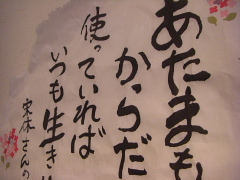 あたまも
からだ
使っていれば
いつも生き
さんの